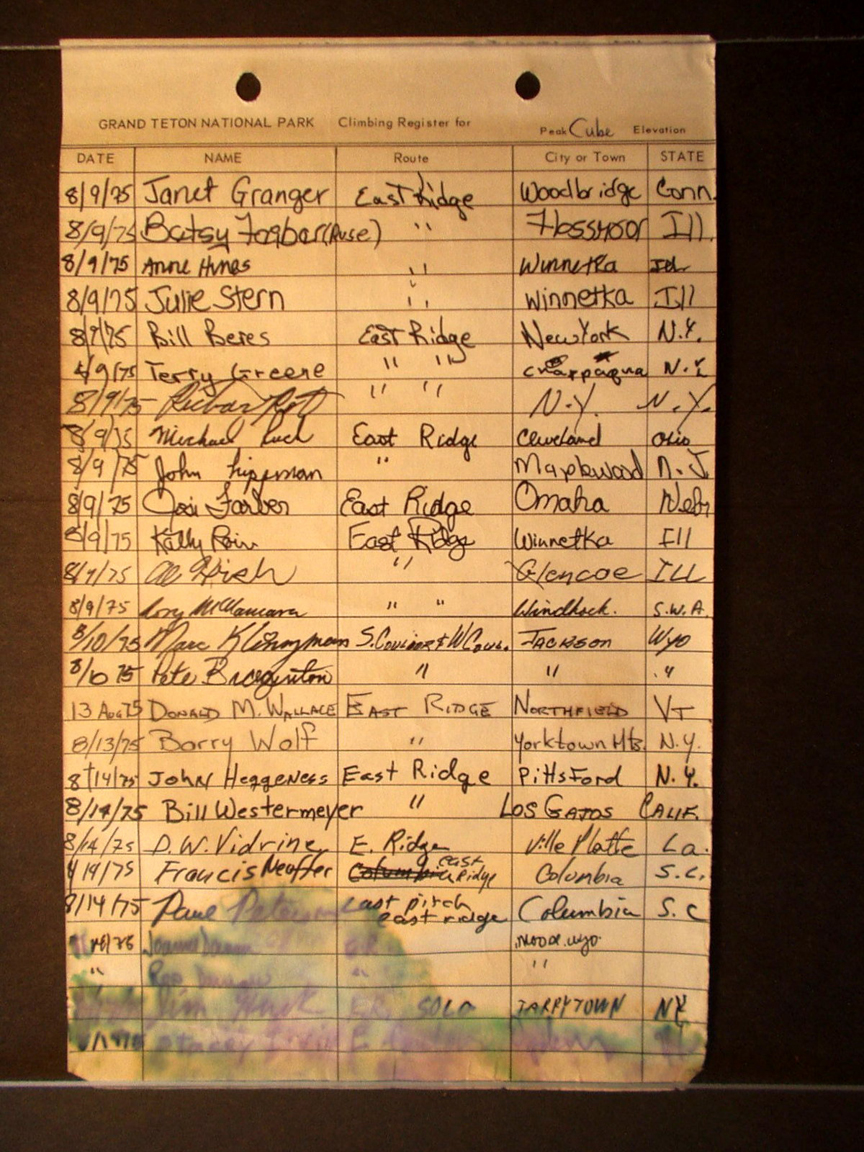 GRAND TETON NATIONAL PARK Climbing Register for Peak Cube Elevation
DATE NAME Route City or Town STATE
8/9/75 Janet Granger East Ridge Woodbridge Conn.
8/9/75 Betsy " Flossmoor Ill.
8/9/75 Anne Hines " Winnetka Ill.
8/9/75 Julie Stern " Winnetka Ill
8/9/75 Bill Beres East Ridge New York N.Y.
8/9/75 Terry Greene " " N.Y.
8/9/75 " " N.Y. N.Y.
8/9/75 Michael East Ridge Cleveland Ohio
8/9/75 John Lippman " Maplewood N.J.
8/9/75 Farber East Ridge Omaha Nebr
8/9/75 Kathy East Ridge Winnetka Ill
8/9/75 Al " Glencoe ILL
8/9/75 Rory McNamara " " Windhoek. S.W.A.
8/10/75 Marc S. Couloir & W Coul. JACKSON Wyo
8/10 75 Pete " " "
13 AUG 75 DONALD M. WALLACE EAST RIDGE NORTHFIELD VT
8/13/75 Barry Wolf " Yorktown Hts. N.Y.
8/14/75 JOHN HEGGENESS East Ridge PITTSFORD N.Y.
8/14/75 Bill Westermeyer " LOS GATOS CALIF.
8/14/75 D.W. Vidrine E. Ridge Ville Platte La.
/14/75 Francis Neuffer east Ridge Columbia S.C.
8/14/75 East pitch east ridge Columbia S.C
wyo.
" " "
Jim E.R. SOLO TARRYTOWN NY
Stacey E.